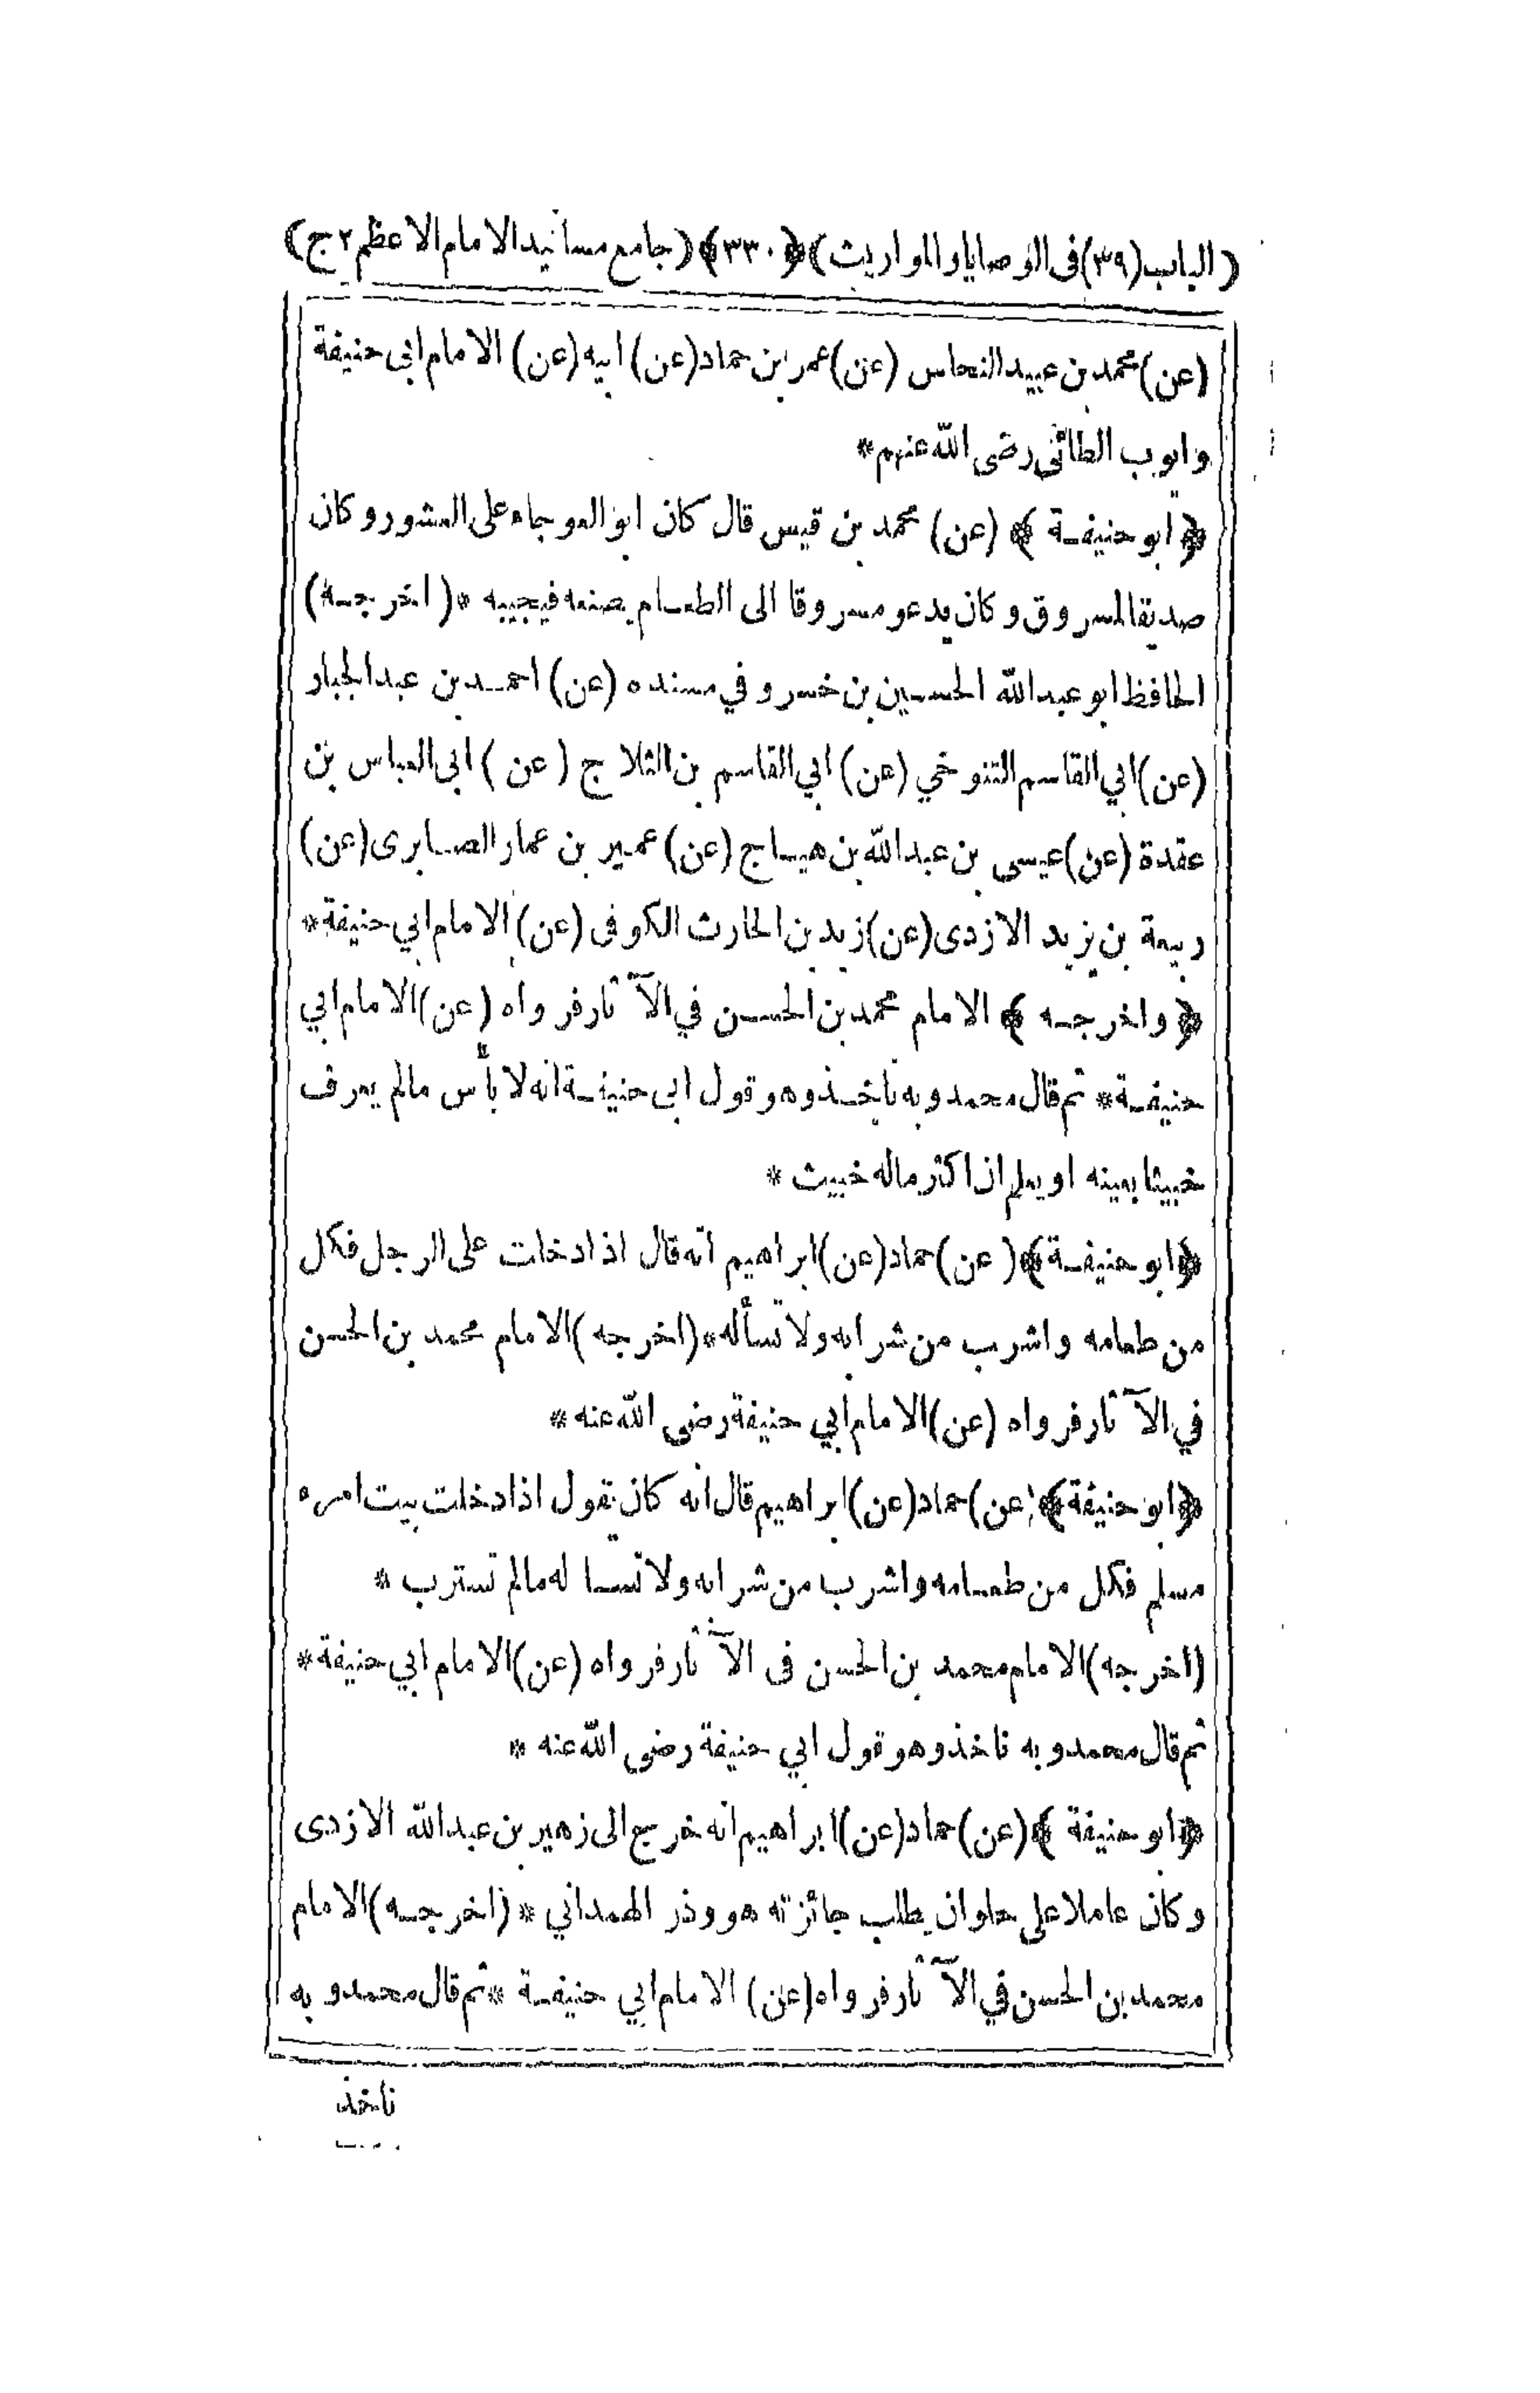 (الباب (٣٩) فى الوصايا والمواريث) ﴿٣٣٠﴾ (جامع مسانيد الامام الاعظم ٢ ج)
(عن) محمد بن عبيد النحاس (عن) عمر بن حماد (عن) ابيه (عن) الامام ابى حنيفة
وايوب الطائى رضى الله عنهم *
﴿ ابو حنيفة ﴾ (عن) محمد بن قيس قال كان ابو العوجاء على العشور وكان
صديقا لمسروق وكان يدعو مسروقا الى الطعام يصنعه فيجيبه * (اخرجه)
الحافظ ابو عبد الله الحسين بن خسرو في مسنده (عن) احمد بن عبد الجبار
(عن) ابي القاسم التنوخي (عن) ابي القاسم بن الثلاج (عن) ابى العباس بن
عقدة (عن) عيسى بن عبد الله بن هياج (عن) عمير بن عمار الصابرى (عن)
ربيعة بن يزيد الازدى (عن) زيد بن الحارث الكوفى (عن) الامام ابي حنيفة *
﴿ واخرجه ﴾ الامام محمد بن الحسن في الآثار فرواه (عن) الامام ابي
حنيفة * ثم قال محمد وبه ناخذ وهو قول ابى حنيفة انه لا بأس مالم يعرف
خبيثا بعينه او يعلم ان اكثر ماله خبيث *
﴿ابو حنيفة﴾ (عن) حماد (عن) ابراهيم انه قال اذا دخلت على الرجل فكل
من طعامه واشرب من شرابه ولا تسأله * (اخرجه) الامام محمد بن الحسن
في الآثار فرواه (عن) الامام ابي حنيفة رضى الله عنه *
﴿ابو حنيفة﴾ (عن) حماد (عن) ابراهيم قال انه كان يقول اذا دخلت بيت امره
مسلم فكل من طعامه واشرب من شرابه ولا تسا له مالم تسترب *
(اخرجه) الامام محمد بن الحسن فى الآثار فرواه (عن) الامام ابي حنيفة *
ثم قال محمد وبه ناخذ وهو قول ابي حنيفة رضى الله عنه *
﴿ابو حنيفة ﴾ (عن) حماد (عن) ابراهيم انه خرج الى زهير بن عبد الله الازدى
وكان عاملا على حلوان يطلب جائزته هو وذر الهمداني * (اخرجه) الامام
محمد بن الحسن في الآثار فرواه (عن) الامام ابي حنيفة * ثم قال محمد و به
ناخذ